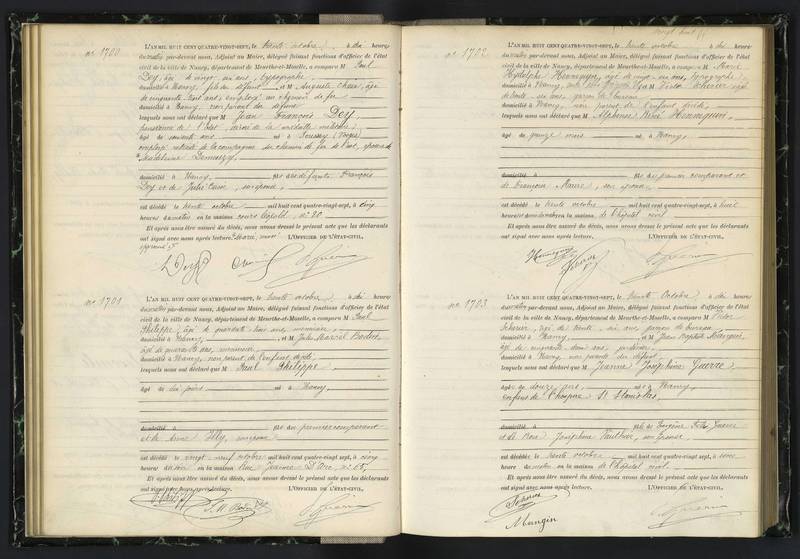 nº 1700
L'AN MIL HUIT CENT QUATRE-VINGT-SEPT, le trente octobre, à dix heures
du matin par-devant nous, Adjoint au Maire, délégué faisant fonctions d'officier de l'état
civil de la ville de Nancy, département de Meurthe-et-Moselle, a comparu M Paul
Dey, âgé de vingt six ans, typographe,
domicilié à Nancy, fils du défunt et M Auguste
de cinquante trois ans, employé au chemin de fer
domicilié à Nancy, non parent du défunt
lesquels nous ont déclaré que M Jean François Dey,
pensionné de l'Etat, décoré de la médaille militaire,
âgé de soixante ans né à (Vosges)
employé retraité de la compagnie du chemin de fer de l'est, époux de
Madeleine
domicilié à Nancy, fils des défunts François
Dey et de Julie son épouse,
est décédé le trente octobre mil huit cent quatre-vingt-sept, à cinq
heures du matin en la maison cours Léopold, nº 20
Et après nous être assuré du décès, nous avons dressé le présent acte que les déclarants
ont signé avec nous après lecture. L'OFFICIER DE L'ÉTAT-CIVIL,
nº 1701
L'AN MIL HUIT CENT QUATRE-VINGT-SEPT, le trente octobre, à dix heures
du matin par-devant nous, Adjoint au Maire, délégué faisant fonctions d'officier de l'état
civil de la ville de Nancy, département de Meurthe-et-Moselle, a comparu M Paul
Philippe, âgé de quarante trois ans, menuisier,
domicilié à Nancy, et M Jules Marcel
âgé de quarante ans, menuisier
domicilié à Nancy, non parent de l'enfant décédé,
lesquels nous ont déclaré que M Paul Philippe,
âgé de dix jours né à Nancy
domicilié à fils du premier comparant
et de Anne son épouse
est décédé le vingt neuf octobre mil huit cent quatre-vingt-sept, à cinq
heures du soir en la maison Rue Jeanne D'Arc, nº 65,
Et après nous être assuré du décès, nous avons dressé le présent acte que les déclarants
ont signé avec nous après lecture. L'OFFICIER DE L'ÉTAT-CIVIL,
nº 1702
L'AN MIL HUIT CENT QUATRE-VINGT-SEPT, le trente octobre, à dix heures
du matin par-devant nous, Adjoint au Maire, délégué faisant fonctions d'officier de l'état
civil de la ville de Nancy, département de Meurthe-et-Moselle, a comparu M Marie
Hennequin, âgé de vingt six ans, typographe,
domicilié à Nancy, et M Victor Scherrer âgé
de trente six ans, garçon de bureau
domicilié à Nancy, non parent de l'enfant
lesquels nous ont déclaré que M Alphonse René Hennequin,
âgé de quinze mois né à Nancy,
domicilié à fils du premier comparant et
de Françoise son épouse
est décédé le trente octobre mil huit cent quatre-vingt-sept, à huit
heures en la maison de l'hôpital civil
Et après nous être assuré du décès, nous avons dressé le présent acte que les déclarants
ont signé avec nous après lecture. L'OFFICIER DE L'ÉTAT-CIVIL,
Hennequin
Scherrer
nº 1703
L'AN MIL HUIT CENT QUATRE-VINGT-SEPT, le trente Octobre, à dix heures
du matin par-devant nous, Adjoint au Maire, délégué faisant fonctions d'officier de l'état
civil de la ville de Nancy, département de Meurthe-et-Moselle, a comparu M Victor
Scherrer, âgé de trente six ans garçon de bureau
domicilié à Nancy, et M Jean Baptiste Mangin,
âgé de cinquante deux ans, jardinier
domicilié à Nancy non parents du défunt
lesquels nous ont déclaré que M Jeanne Joséphine Guerre
âgée de douze ans née à Nancy
enfant de l'hospice St Stanislas
domicilié à fille de Eugène Guerre
et de Rose Joséphine Vauthier, son épouse
est décédée le trente octobre mil huit cent quatre-vingt-sept, à une
heure du matin en la maison de l'hôpital civil
Et après nous être assuré du décès, nous avons dressé le présent acte que les déclarants
ont signé avec nous après lecture. L'OFFICIER DE L'ÉTAT-CIVIL,
Scherrer
Mangin